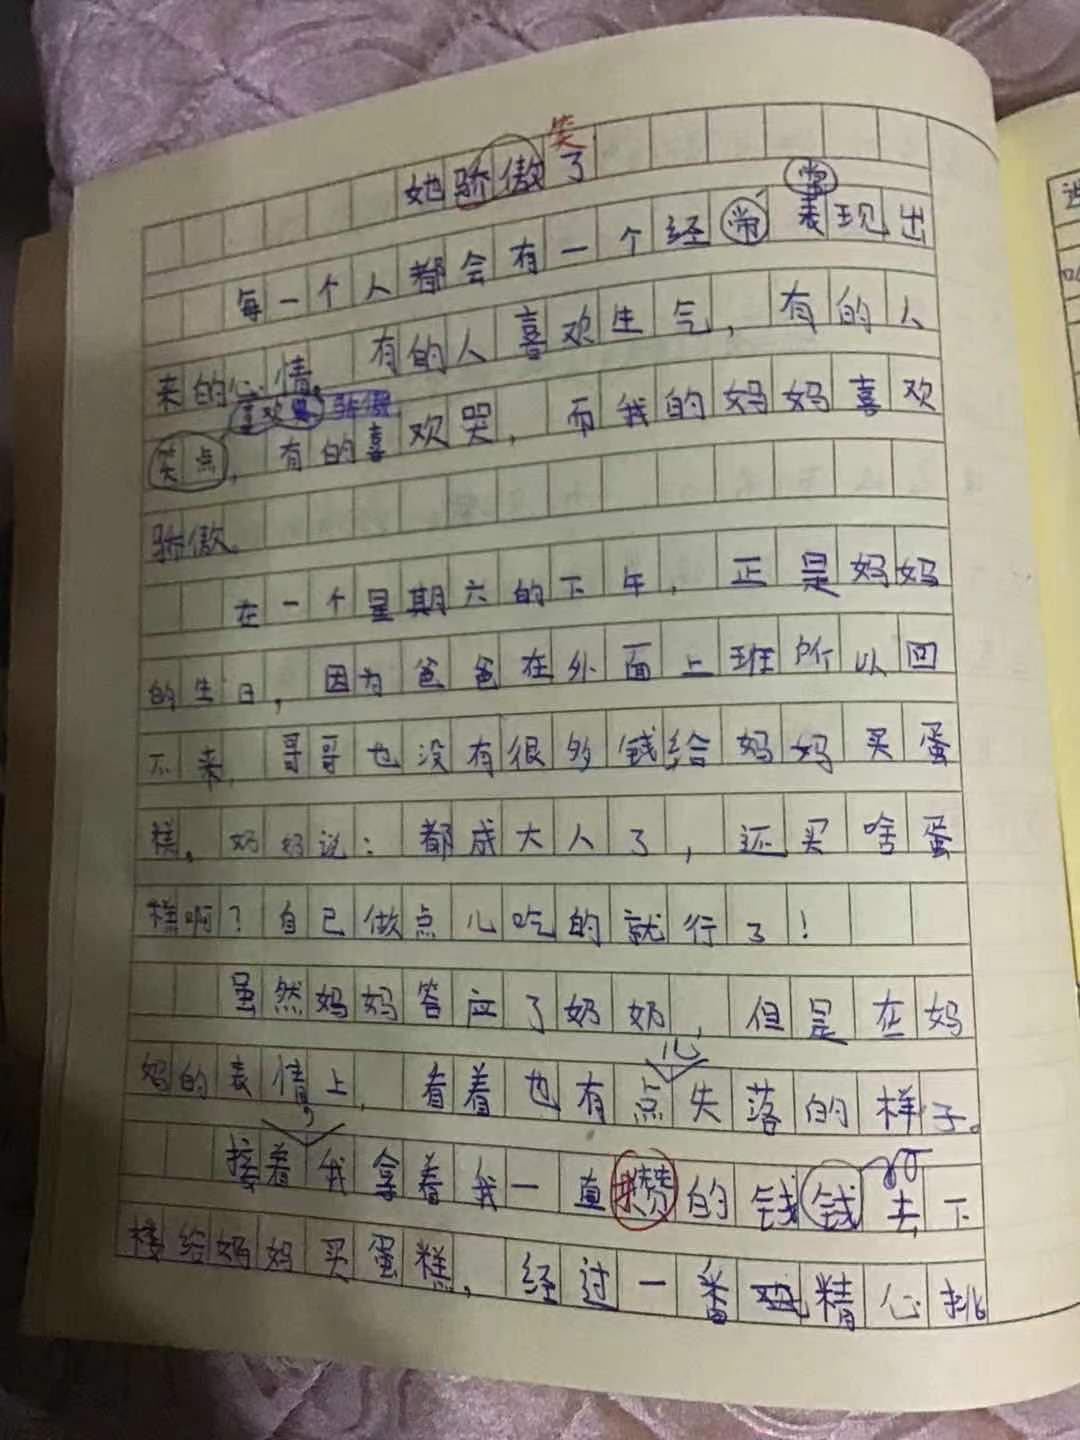 笑
她骄傲了
常
每一个人都会有一个经常表现出
来的心情。有的人喜欢生气，有的人
喜欢
笑点，有的喜欢哭，而我的妈妈喜欢
骄傲。
在一个星期六的下午，正是妈妈
的生日，因为爸爸在外面上班所以回
不来，哥哥也没有很多钱给妈妈买蛋
糕。妈妈说：都成大人了，还买啥蛋
糕啊？自己做点儿吃的就行了！
虽然妈妈答应了奶奶，但是在妈
儿
妈的表情上，看着也有点失落的样子。
，
接着我拿着我一直攒的钱钱去下
楼给妈妈买蛋糕，经过一番精心挑